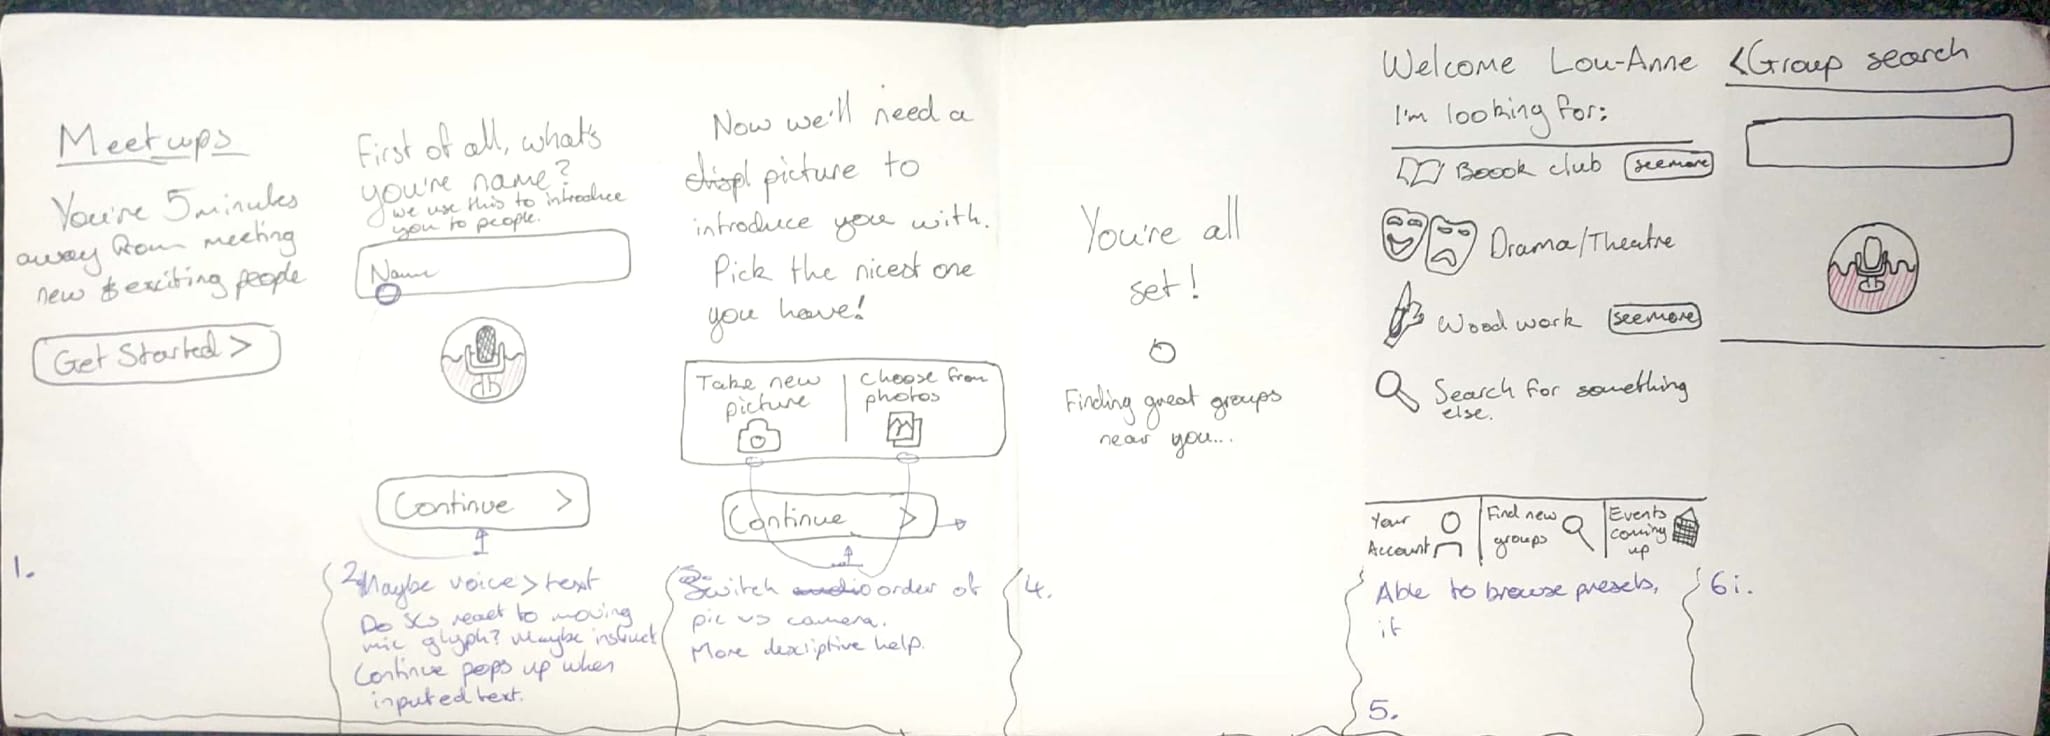 Meetups
You're 5 minutes
away from meeting
new & exciting people
Get Started >
1.
First of all, what's
you're name?
we use this to introduce
you to people.
Name
Continue >
2. Maybe voice > text
Do SCs react to moving
mic glyph? Maybe instruct
Continue pops up when
inputed text.
Now we'll need a
displ picture to
introduce you with.
Pick the nicest one
you have!
Take new
picture
Choose from
photos
Continue >
3. Switch audio order of
pic vs camera.
More descriptive help.
You're all
set!
Finding great groups
near you...
4.
Welcome Lou-Anne
I'm looking for:
Boook club
see more
Drama/Theatre
Wood work
see more
Search for something
else.
Your
Account
Find new
groups
Events
coming
up
Able to browse presets,
if
5.
< Group search
6i.